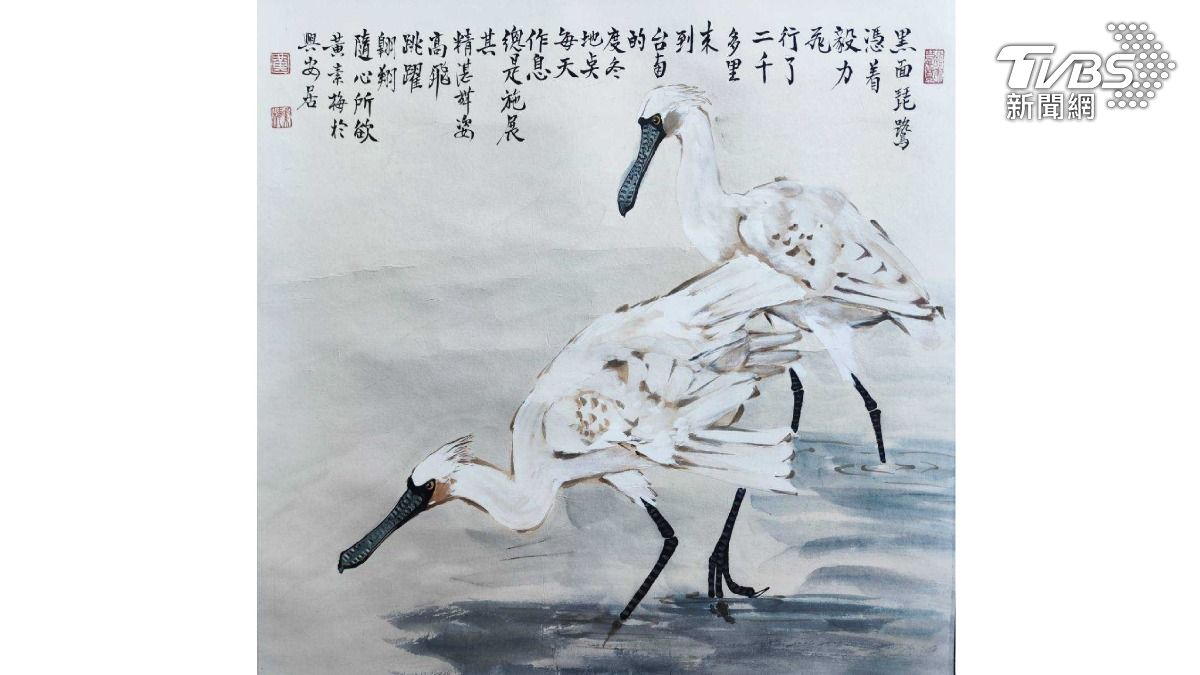 TVBS
新聞網
黑面琵鷺
憑着
毅力
飛
行了
二千
多里
來
到
台南
的
度冬
地奌
每天
作息
總是施展
其
精湛舞姿
高飛
跳躍
翱翔
隨心所欲
黃素梅於
興安居